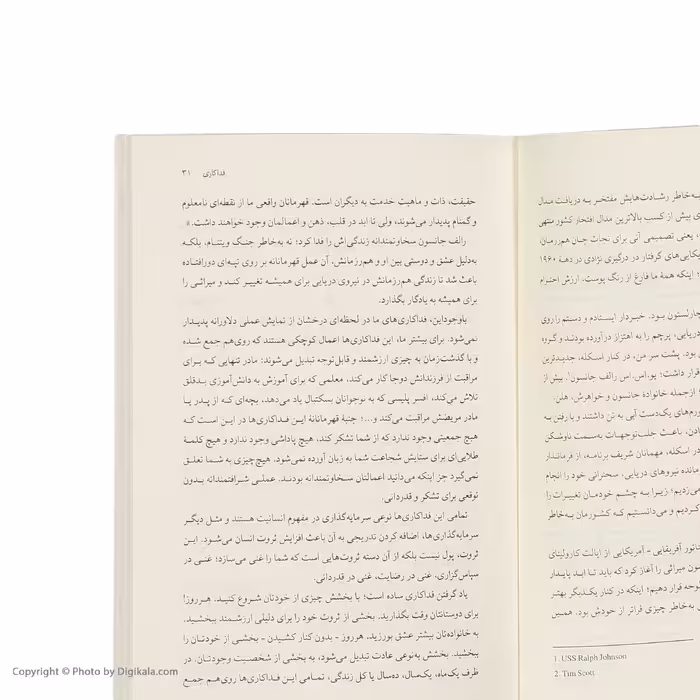 فداکاری ۳۱
حقیقت، ذات و ماهیت خدمت به دیگران است. قهرمانان واقعی ما از نقطه‌ای نامعلوم
و گمنام پدیدار می‌شوند، ولی تا ابد در قلب، ذهن و اعمالمان وجود خواهند داشت.»
رالف جانسون سخاوتمندانه زندگی‌اش را فدا کرد؛ نه به‌خاطر جنگ ویتنام، بلکه
به‌دلیل عشق و دوستی بین او و هم‌رزمانش. آن عمل قهرمانانه بر روی تپه‌ای دورافتاده
باعث شد تا زندگی هم‌رزمانش در نیروی دریایی برای همیشه تغییر کند و میراثی را
برای همیشه به یادگار بگذارد.
باوجوداین، فداکاری‌های ما در لحظه‌ای درخشان از نمایش عملی دلاورانه پدیدار
نمی‌شود. برای بیشتر ما، این فداکاری‌ها اعمال کوچکی هستند که روی‌هم جمع شده
و با گذشت‌زمان به چیزی ارزشمند و قابل‌توجه تبدیل می‌شوند: مادر تنهایی که برای
مراقبت از فرزندانش دوجا کار می‌کند، معلمی که برای آموزش به دانش‌آموزی بدقلق
تلاش می‌کند، افسر پلیسی که به نوجوانان بسکتبال یاد می‌دهد، بچه‌ای که از پدر یا
مادر مریضش مراقبت می‌کند و...؛ جنبهٔ قهرمانانهٔ این فداکاری‌ها در این است که
هیچ جمعیتی وجود ندارد که از شما تشکر کند، هیچ پاداشی وجود ندارد و هیچ کلمهٔ
طلایی‌ای برای ستایش شجاعت شما به زبان آورده نمی‌شود. هیچ چیزی به شما تعلق
نمی‌گیرد جز اینکه می‌دانید اعمالتان سخاوتمندانه بودند. عملی شرافتمندانه بدون
توقعی برای تشکر و قدردانی.
تمامی این فداکاری‌ها نوعی سرمایه‌گذاری در مفهوم انسانیت هستند و مثل دیگر
سرمایه‌گذاری‌ها، اضافه کردن تدریجی به آن باعث افزایش ثروت انسان می‌شود. این
ثروت، پول نیست بلکه از آن دسته ثروت‌هایی است که شما را غنی می‌سازد؛ غنی در
سپاس‌گزاری، غنی در رضایت، غنی در قدردانی.
یاد گرفتن فداکاری ساده است؛ با بخشش چیزی از خودتان شروع کنید. هرروز!
برای دوستانتان وقت بگذارید. بخشی از ثروت خود را برای دلیلی ارزشمند ببخشید.
به خانواده‌تان بیشتر عشق بورزید، هرروز - بدون کنار کشیدن - بخشی از خودتان را
ببخشید. بخشش به‌نوعی عادت تبدیل می‌شود، به بخشی از شخصیت وجودتان. در
ظرف یک‌ماه، یک‌سال، ده‌سال یا کل زندگی، تمامی این فداکاری‌ها روی‌هم جمع
به‌خاطر رشادت‌هایش مفتخر به دریافت مدال
ی بیش از کسب بالاترین مدال افتخار کشور منتهی
، یعنی تصمیمی آنی برای نجات جان هم‌رزمان،
یکایی‌های گرفتار در درگیری نژادی در دههٔ ۱۹۶۰
؛ اینکه همهٔ ما فارغ از رنگ پوست، ارزش احترام
چارلستون بود. خبردار ایستادم و دستم را روی
دریایی، پرچم را به اهتزاز درآورده بودند و گروه
ی بود. پشت سر من، در کنار اسکله، جدیدترین
قرار داشت؛ یو.اس.اس رالف جانسون¹. بیش از
؛ ازجمله خانوادهٔ جانسون و خواهرش، هلن.
ورم‌های یک‌دست آبی به تن داشتند و با رفتن به
دادن، باعث جلب‌توجهات به‌سمت ناوشکن
در اسکله، مهمانان شریف برنامه، از فرماندار
مانده نیروهای دریایی، سخنرانی خود را انجام
می‌زدیم؛ زیرا به چشم خودمان تغییرات را
کردیم و می‌دانستیم که کشورمان به‌خاطر
ناتور آفریقایی - آمریکایی از ایالت کارولینای
سون میراثی را آغاز کرد که باید تا ابد پایدار
توجه قرار دهیم؛ اینکه در کنار یکدیگر بهتر
ی به‌خاطر چیزی فراتر از خودش بود. همین
1. USS Ralph Johnson
2. Tim Scott
Copyright © Photo by Digikala.com